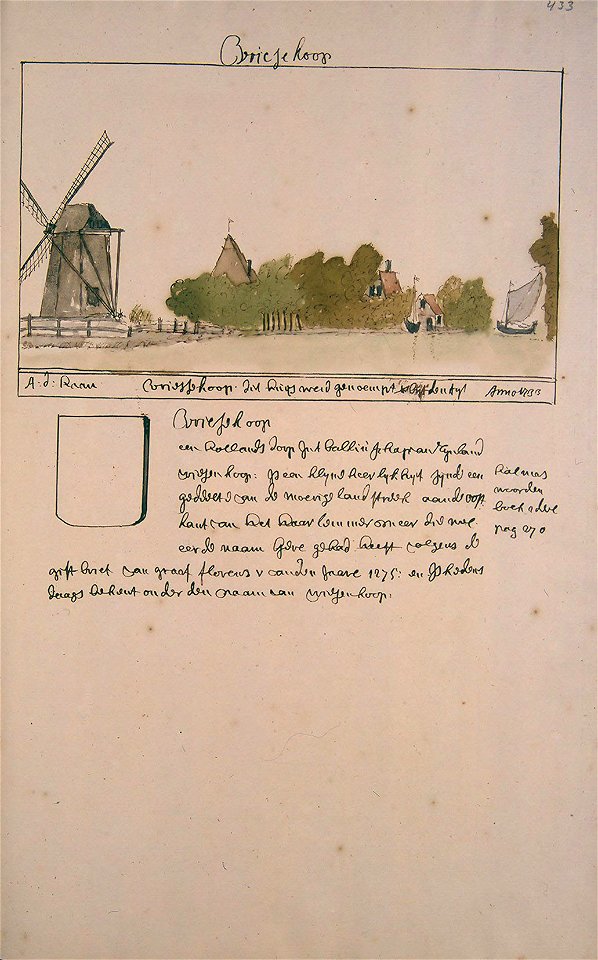 433
Vriesekoop
A: d: Haen Vriessekoop: dit Huis werd genoempt Anno 1733
Vriesekoop
een Hollands dorp int balliuschap van Rynland
vriesenkoop: is een klyne heerlykhyt synde een
gedeelte van de moerige landstreek aan de oost
kant van het Haarlemmermeer die
eer de naam gehad heeft volgens de
giftbrief van graaf florens v van den Jaare 1275: en is hedens
daags bekent onder den naam van vriesenkoop:
Halmas
woorden
boek 1 deel
pag 270